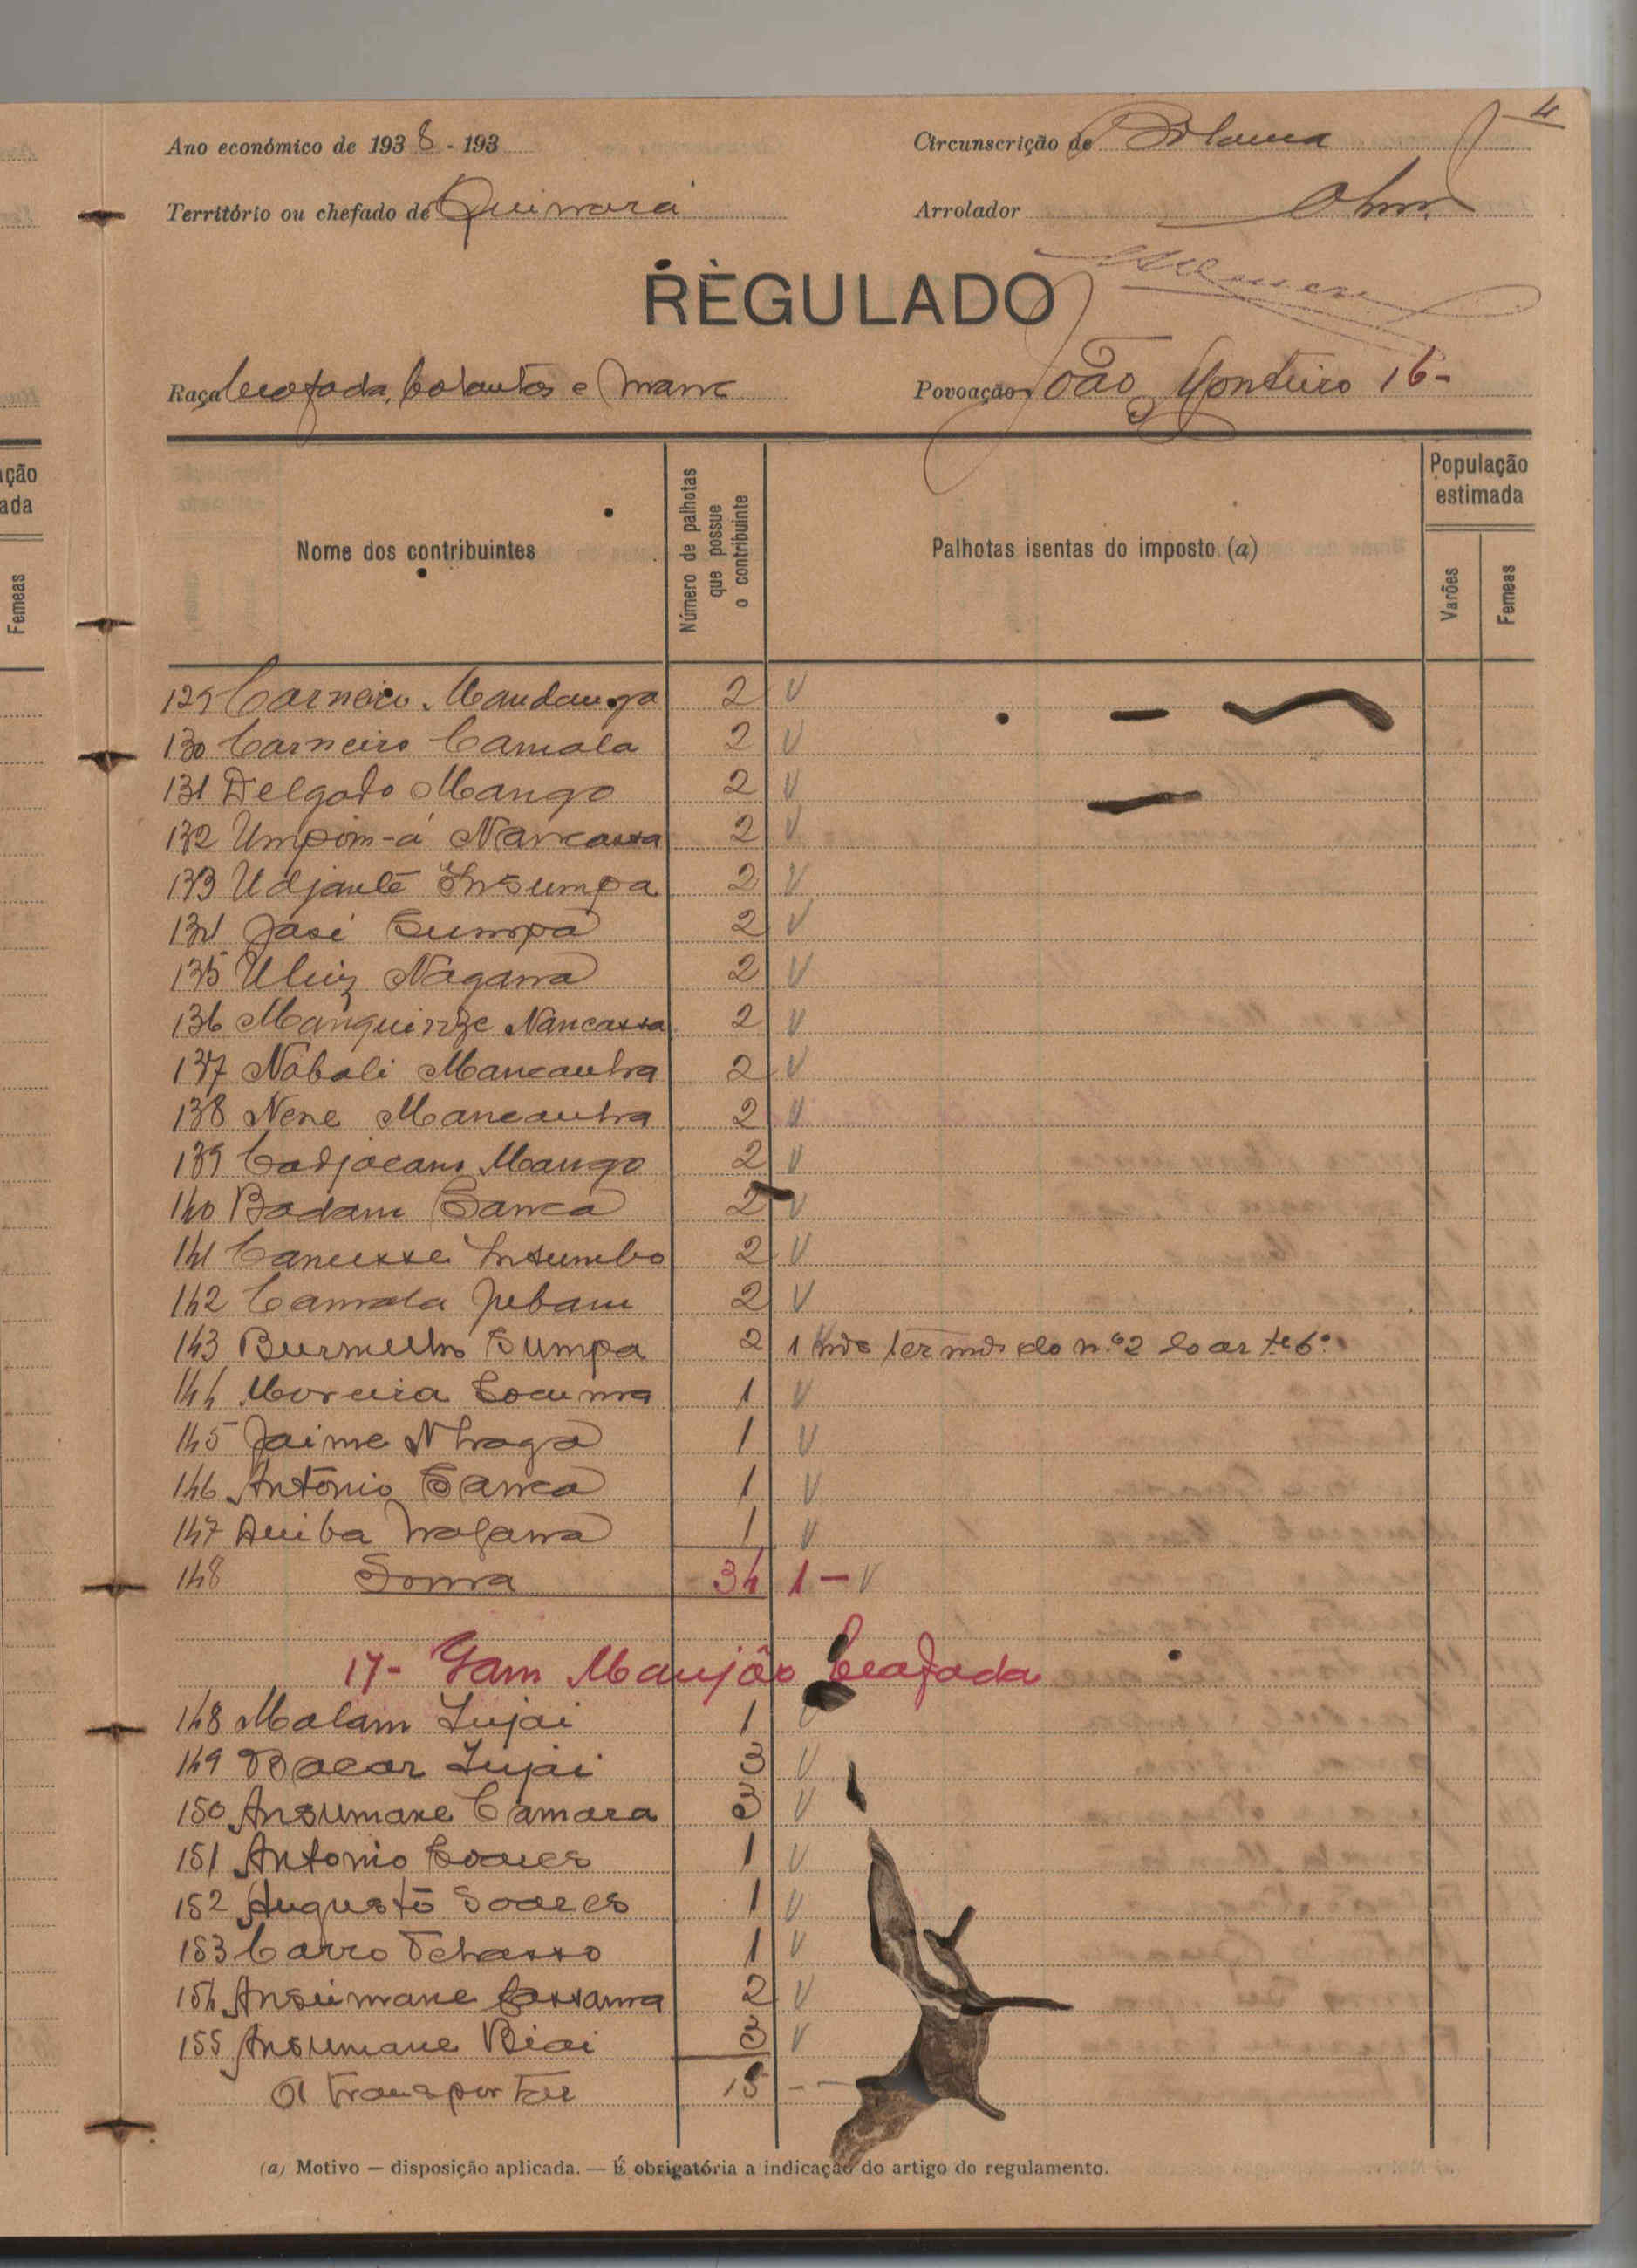 4
Ano económico de 1938 - 193
Circunscrição de Bolama
Território ou chefado de Quinara
Arrolador
REGULADO
Raça Beafada, Balantas e Manc
Povoação João Monteiro 16-
ção
ada
Femeas
Nome dos contribuintes
Número de palhotas que possue o contribuinte
Palhotas isentas do imposto (a)
População estimada
Varões
Femeas
129 Carneiro Mandanga 2 V
130 Carneiro Camala 2 V
131 Delgado Mango 2 V
132 Umpom-á Nancassa 2 V
133 Udjantè Insumpa 2 V
134 José Sumpa 2 V
135 Uluiz Nagana 2 V
136 Manquinze Nancassa 2 V
137 Nabali Mancanha 2 V
138 Nene Mancanha 2 V
139 Cadjacam Mango 2 V
140 Badam Sanca 2 V
141 Canusse Insumbo 2 V
142 Camala Jubam 2 V
143 Sumpa 2 1 nos termos do n.º 2 do artº 6º
144 Moreira Socuma 1 V
145 Jaime Nhaga 1 V
146 António Sanca 1 V
147 1 V
148 Soma 34 1 - V
17- Gam Manjão Beafada
148 Malam Injai 1
149 Bacar Injai 3 V
150 Ansumane Camara 3 V
151 Antonio Soares 1 V
152 Augusto Soares 1 V
153 Carro Tchasso 1 V
154 Ansumane Cassama 2 V
155 Ansumane Biai 3 V
A transportar 15 - -
(a) Motivo — disposição aplicada. — É obrigatória a indicação do artigo do regulamento.